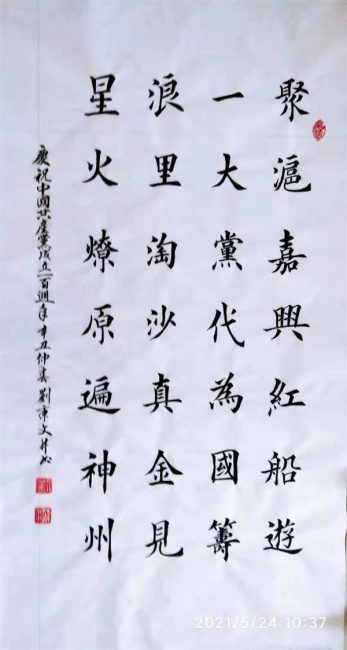 聚滬嘉興紅船遊
一大黨代為國籌
浪里淘沙真金見
星火燎原遍神州
慶祝中國共產黨成立一百週年辛丑仲夏劉東文並书
2021/5/24 10:37